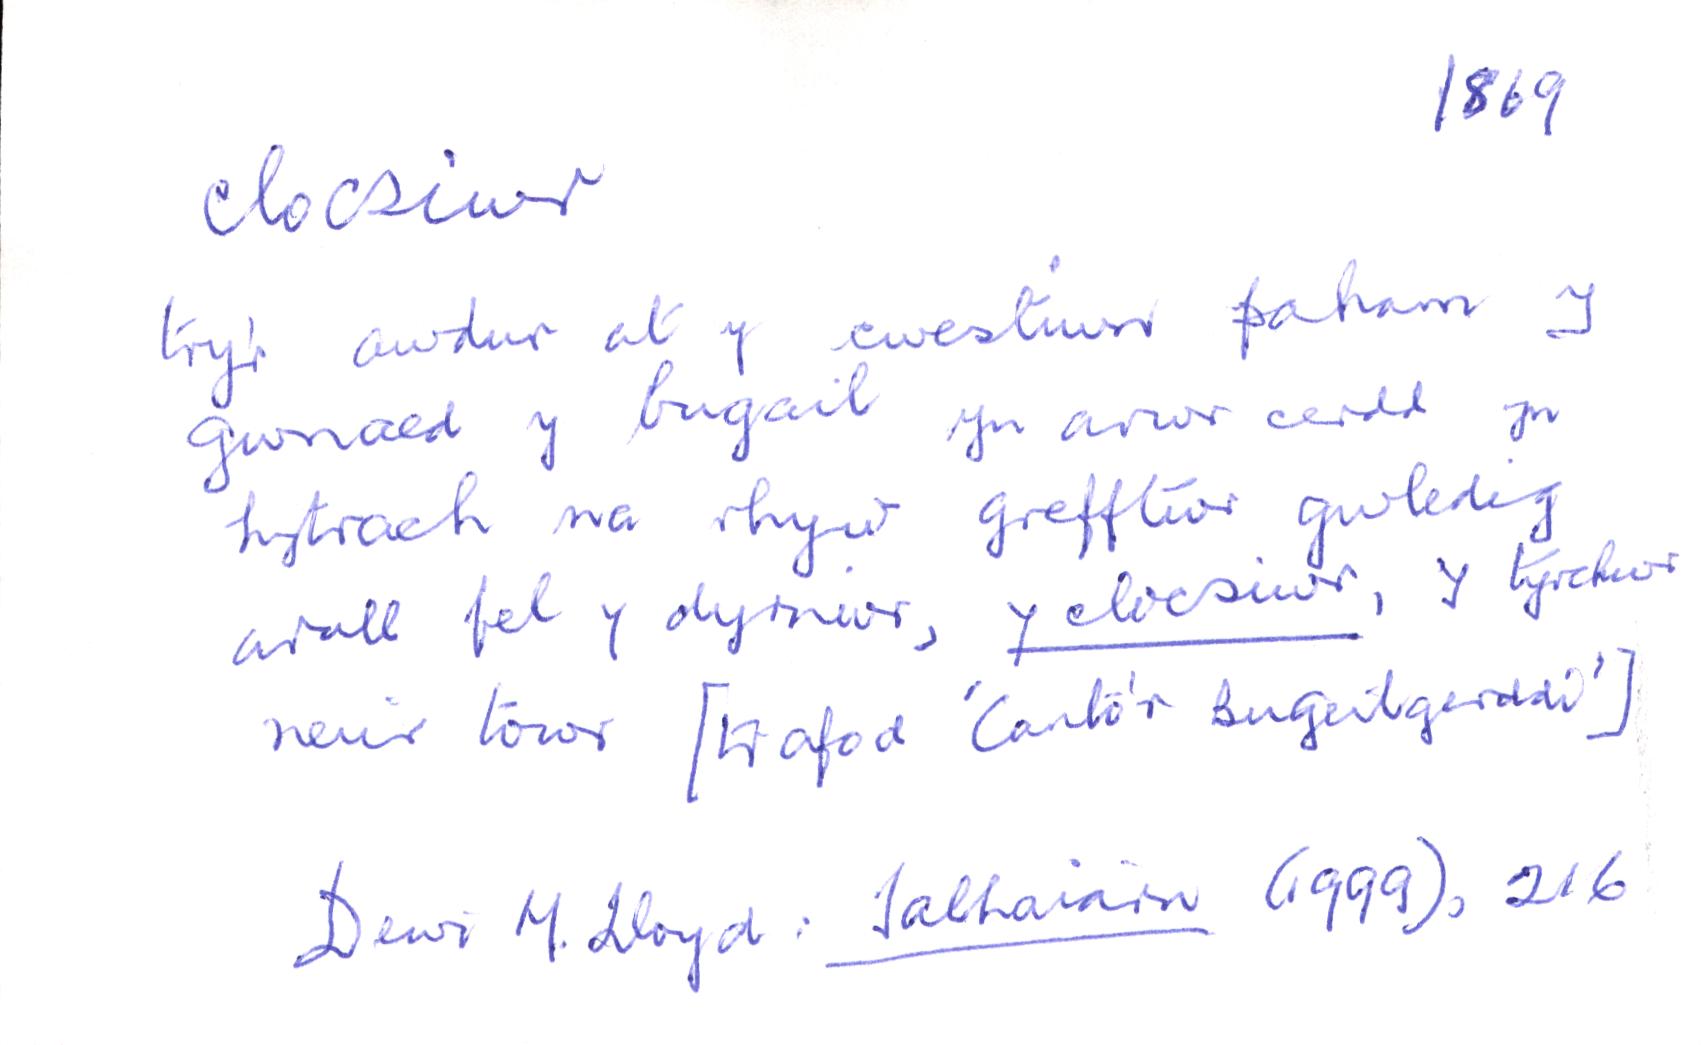 1869
clocsiwr
try'r awdur at y cwestiwn paham y
gwnaed y bugail yn arwr cerdd yn
hytrach na rhyw grefftwr gwledig
arall fel y dyrnwr, y clocsiwr, y tyrchwr
neu'r töwr [trafod 'Canto'r Bugeilgerddi']
Dewi M. Lloyd: Talhaiarn (1999), 216